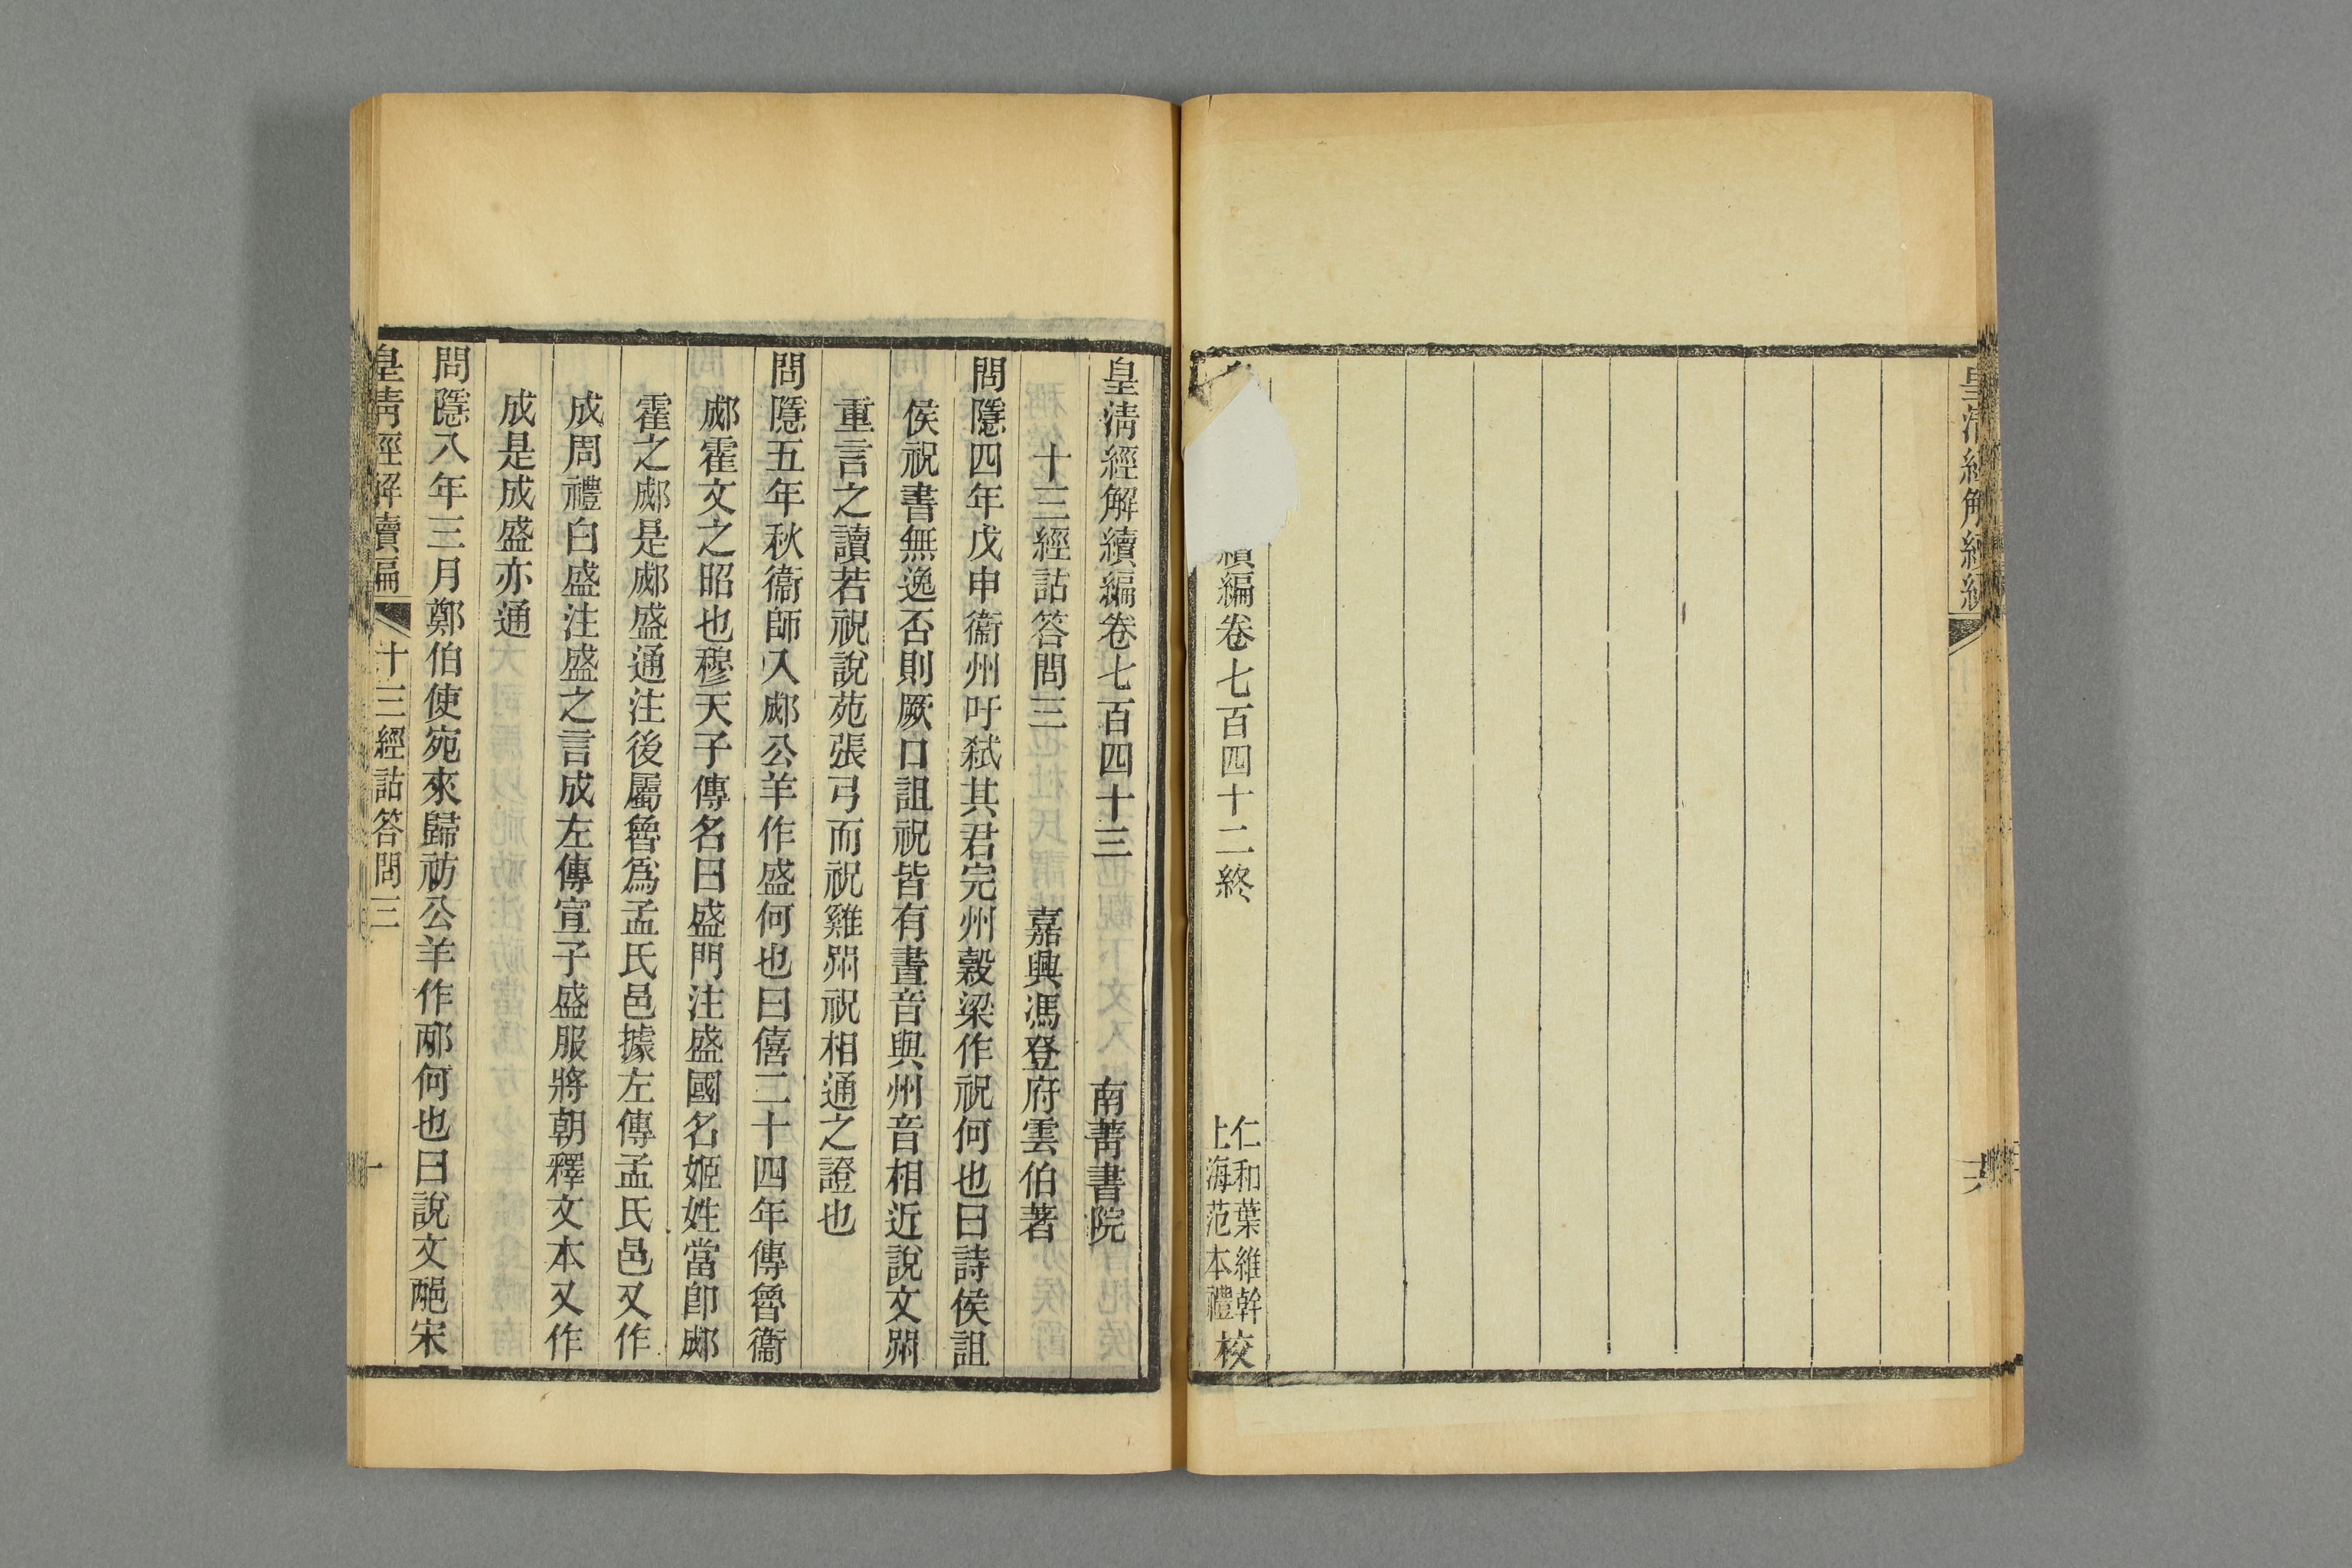 皇清經解續編
續編卷七百四十二終
仁和葉維幹
上海范本禮
校
皇清經解續編卷七百四十三
南菁書院
十三經詁答問三
嘉興馮登府雲伯著
問隱四年戊申衞州吁弒其君完州穀梁作祝何也曰詩侯詛
侯祝書無逸否則厥口詛祝皆有晝音與州音相近說文喌
重言之讀若祝說苑張弓而祝雞喌祝相通之證也
問隱五年秋衞師入郕公羊作盛何也曰僖二十四年傳魯衞
郕霍文之昭也穆天子傳名曰盛門注盛國名姬姓當卽郕
霍之郕是郕盛通注後屬魯爲孟氏邑據左傳孟氏邑又作
成周禮白盛注盛之言成左傳宣子盛服將朝釋文本又作
成是成盛亦通
問隱八年三月鄭伯使宛來歸祊公羊作邴何也曰說文宋
皇清經解續編
十三經詁答問三
一